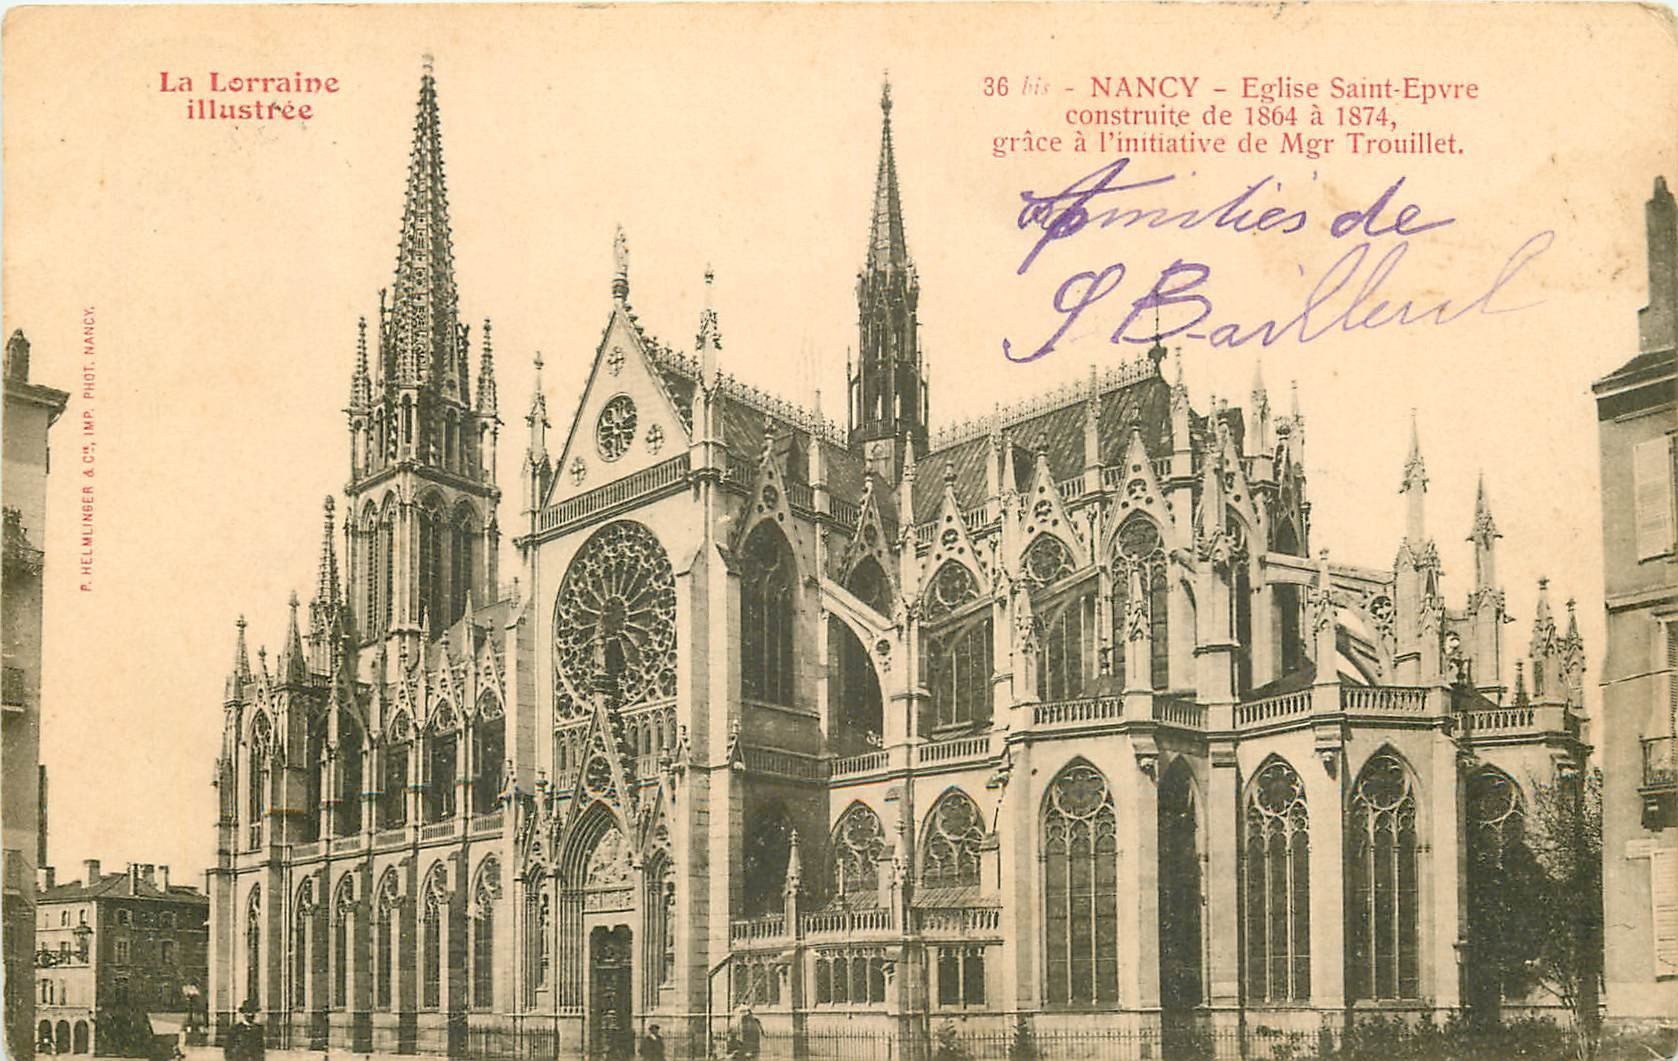 La Lorraine
illustrée
36 bis - NANCY - Eglise Saint-Epvre
construite de 1864 à 1874,
grâce à l'initiative de Mgr Trouillet.
Amitiés de
S Bailleul
P. HELMLINGER & Cie, IMP. PHOT. NANCY.